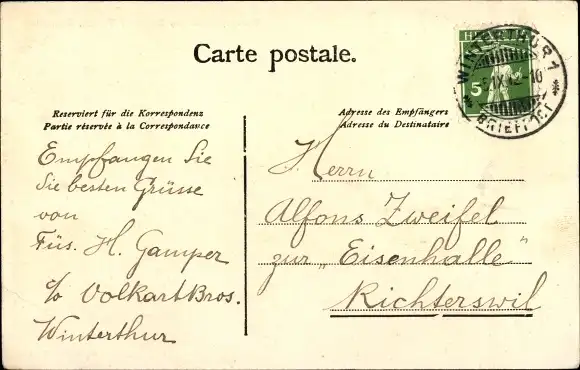 Carte postale.
HELVETIA
5
WINTERTHUR 1
BRIEFAUFG.
Reserviert für die Korrespondenz
Partie réservée à la Correspondance
Adresse des Empfängers
Adresse du Destinataire
Empfangen Sie
die besten Grüsse
von
Füs. H. Gamper
c/o Volkart Bros.
Winterthur
Herrn
Alfons Zweifel
zur „Eisenhalle"
Richterswil